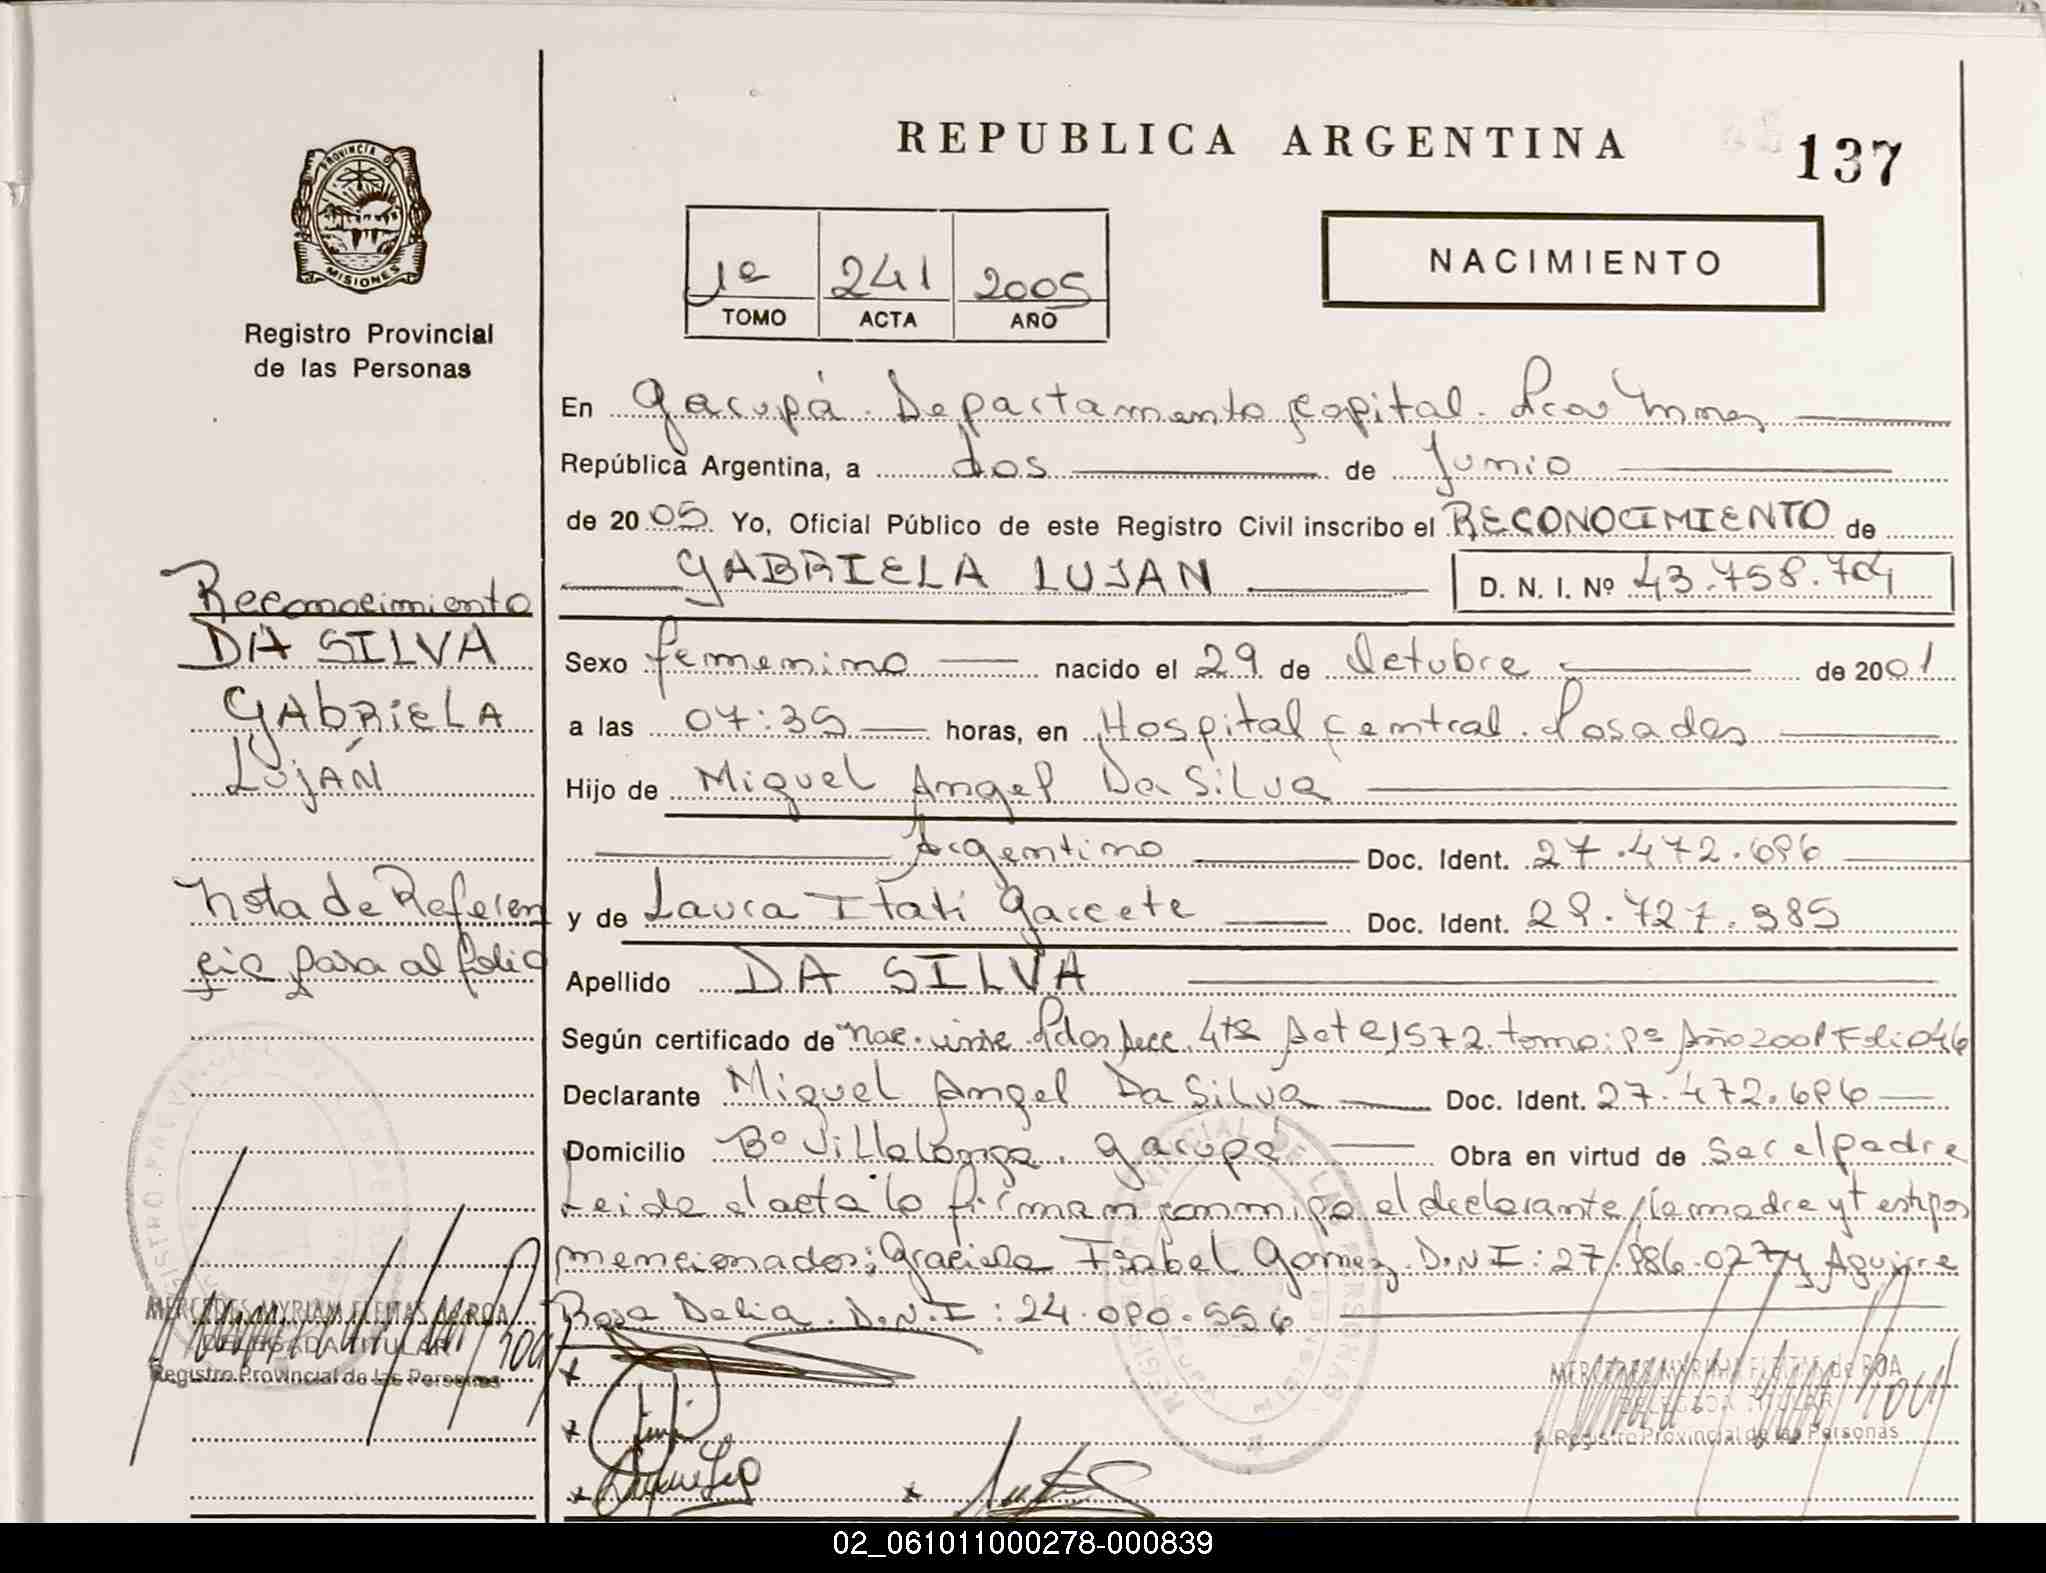 REPUBLICA ARGENTINA
137
PROVINCIA D
MISIONES
Registro Provincial
de las Personas
1º 241 2005
TOMO ACTA AÑO
NACIMIENTO
En Garupá. Departamento Capital. Pcia Mnes
República Argentina, a dos de Junio
de 2005 Yo, Oficial Público de este Registro Civil inscribo el RECONOCIMIENTO de
GABRIELA LUJAN D. N. I. Nº 43.758.704
Sexo femenino nacido el 29 de Octubre de 2001
a las 07:35 horas, en Hospital Central. Posadas
Hijo de Miguel Angel Da Silva
Argentino Doc. Ident. 27.472.696
y de Laura Itatí Garcete Doc. Ident. 29.727.385
Apellido DA SILVA
Según certificado de Nac. Pdas Secc. 4ta Acta 1572 tomo: Año 2001 Folio 46
Declarante Miguel Angel Da Silva Doc. Ident. 27.472.696
Domicilio Bº Villalonga. Garupá Obra en virtud de ser el padre
Leida el acta lo firman conmigo el declarante, la madre y testigos
mencionados: Graciela Isabel Gomez. D.N.I: 27.986.027 y Aguirre
Rosa Delia. D.N.I: 24.090.556
Reconocimiento
DA SILVA
GAbRiELA
LujÁN
Nota de Referen
cia pasa al folio
MERCEDES MYRIAM FLEITAS de ROA
DELEGADA TITULAR
Registro Provincial de las Personas
MERCEDES MYRIAM FLEITAS de ROA
DELEGADA TITULAR
Registro Provincial de las Personas
02_061011000278-000839